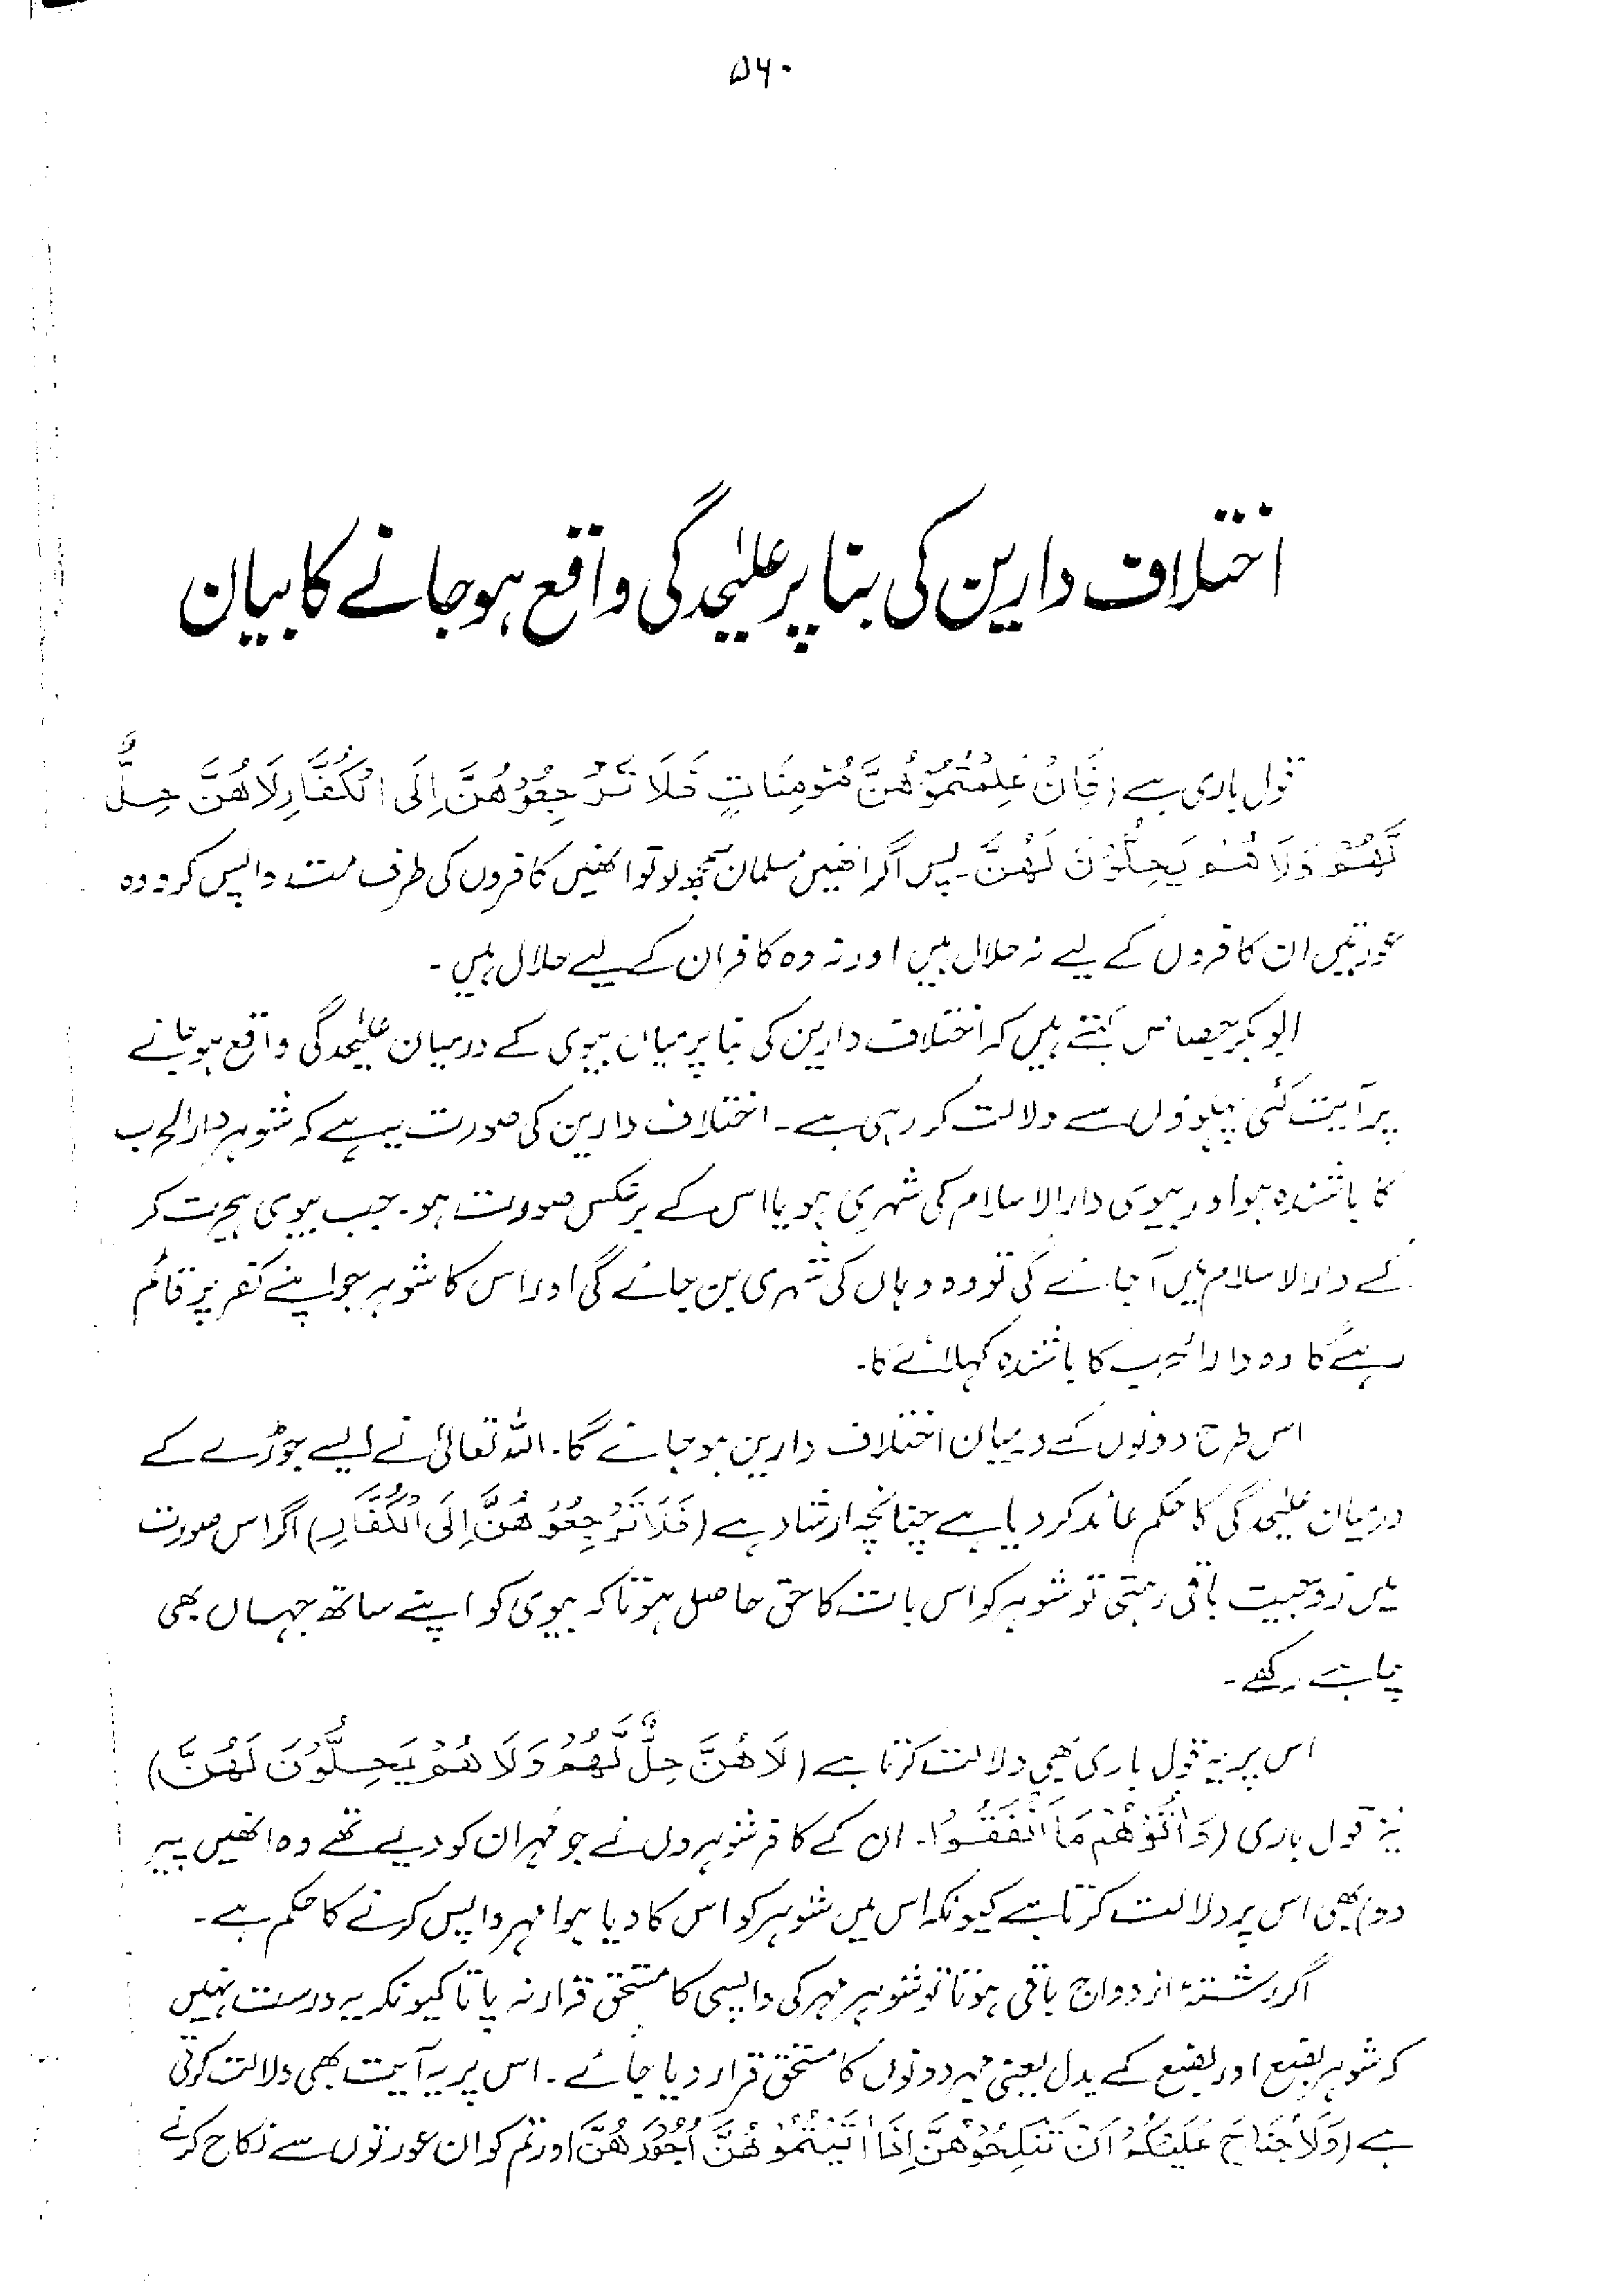 ۵۶۰
اختلاف دارین کی بنا پر علیٰحدگی واقع ہو جانے کا بیان
قول باری ہے (فَاِنْ عَلِمْتُمُوْهُنَّ مُؤْمِنَاتٍ فَلَا تَرْجِعُوْهُنَّ اِلَی الْکُفَّارِ لَا هُنَّ حِلٌّ
لَّهُمْ وَلَا هُمْ یَحِلُّوْنَ لَهُنَّ۔ پس اگر انھیں مسلمان سمجھ لو تو انھیں کافروں کی طرف مت واپس کرو وہ
عورتیں ان کافروں کے لیے نہ حلال ہیں اور نہ وہ کافر ان کے لیے حلال ہیں۔
ابو بکر جصاص کہتے ہیں کہ اختلاف دارین کی بنا پر میاں بیوی کے درمیان علیٰحدگی واقع ہو جانے
پر آیت کئی پہلوؤں سے دلالت کر رہی ہے۔ اختلاف دارین کی صورت یہ ہے کہ شوہر دار الحرب
کا باشندہ ہو اور بیوی دار الاسلام کی شہری ہو یا اس کے برعکس صورت ہو۔ جب بیوی ہجرت کر
کے دار الاسلام میں آ جائے گی تو وہ وہاں کی شہری بن جائے گی اور اس کا شوہر جو اپنے کفر پر قائم
رہے گا وہ دار الحرب کا باشندہ کہلائے گا۔
اس طرح دونوں کے درمیان اختلاف دارین ہو جائے گا۔ اللہ تعالیٰ نے ایسے جوڑے کے
درمیان علیٰحدگی کا حکم عائد کر دیا ہے چنانچہ ارشاد ہے (فَلَا تَرْجِعُوْهُنَّ اِلَی الْکُفَّارِ) اگر اس صورت
میں زوجیت باقی رہتی تو شوہر کو اس بات کا حق حاصل ہوتا کہ بیوی کو اپنے ساتھ جہاں بھی
چاہے رکھے۔
اس پر یہ قول باری بھی دلالت کرتا ہے (لَا هُنَّ حِلٌّ لَّهُمْ وَلَا هُمْ یَحِلُّوْنَ لَهُنَّ)
نیز قول باری (وَاٰتُوْهُمْ مَا اَنْفَقُوْا۔ ان کے کافر شوہروں نے جو مہر ان کو دیے تھے وہ انھیں پھیر
دو) بھی اس پر دلالت کرتا ہے کیونکہ اس میں شوہر کو اس کا دیا ہوا مہر واپس کرنے کا حکم ہے۔
اگر رشتۂ ازدواج باقی ہوتا تو شوہر مہر کی واپسی کا مستحق قرار نہ پاتا کیونکہ یہ درست نہیں
کہ شوہر بضع اور بضع کے بدل یعنی مہر دونوں کا مستحق قرار دیا جائے۔ اس پر یہ آیت بھی دلالت کرتی
ہے (وَلَا جُنَاحَ عَلَیْکُمْ اَنْ تَنْکِحُوْهُنَّ اِذَا اٰتَیْتُمُوْهُنَّ اُجُوْرَهُنَّ اور تم کو ان عورتوں سے نکاح کرنے